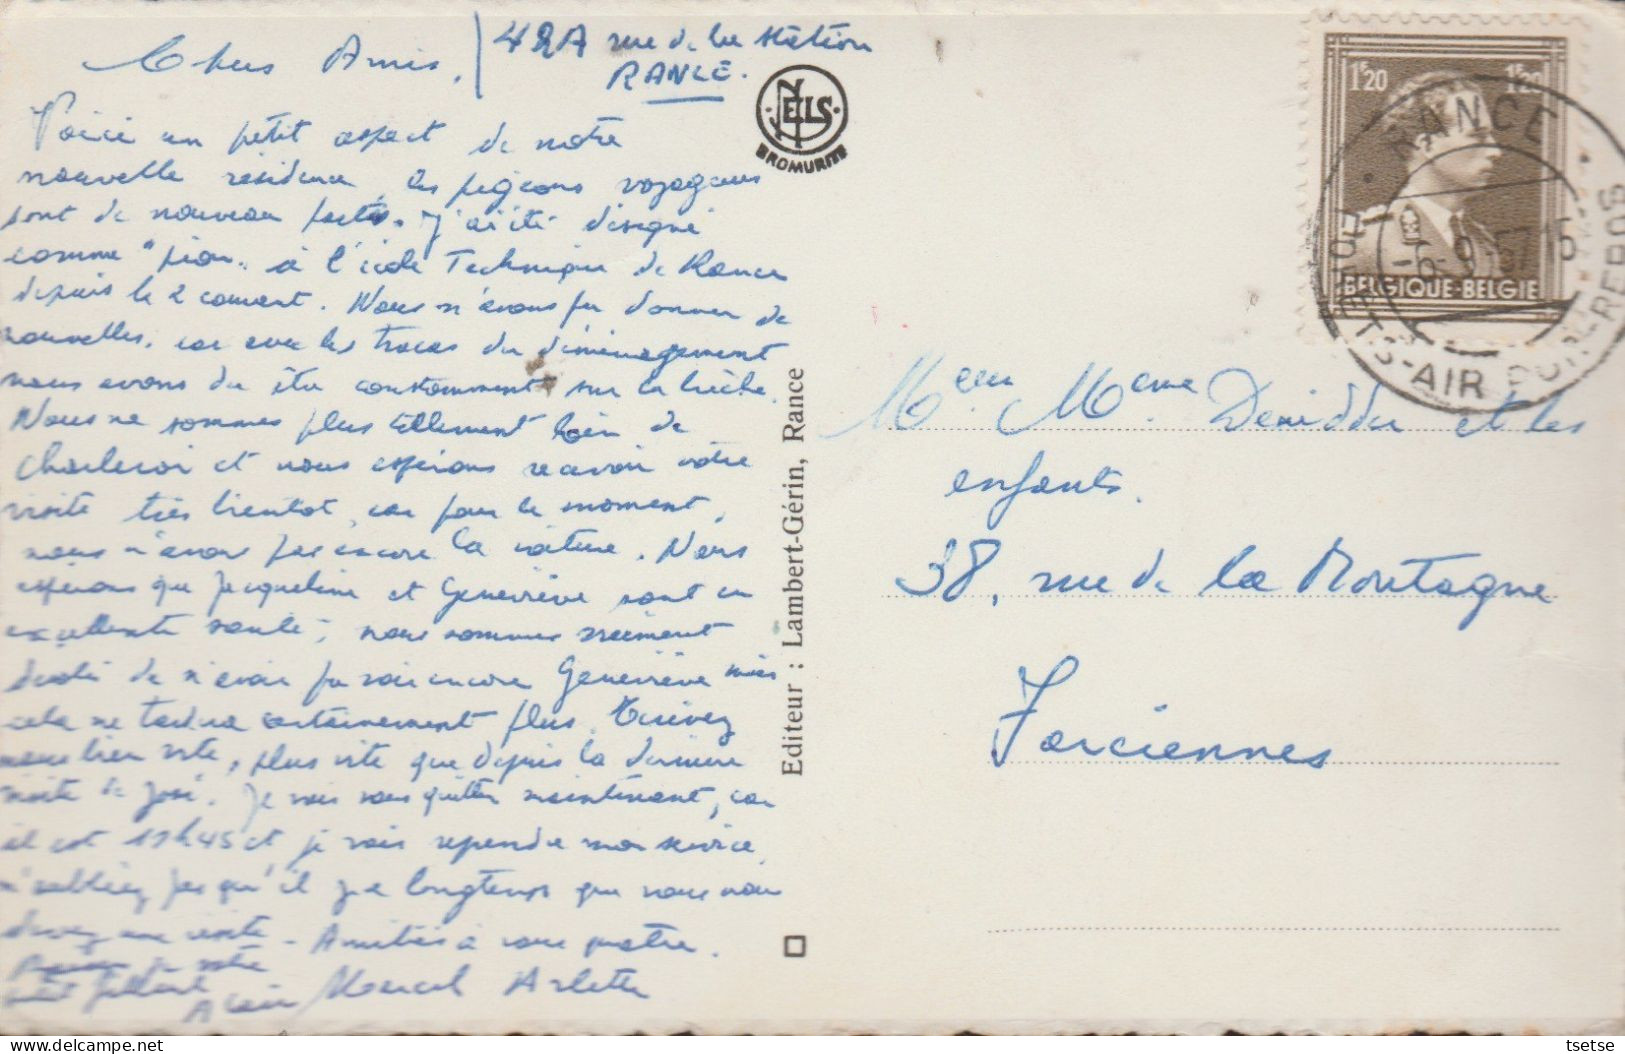 Chers Amis,
42A rue de la station
RANCE.
Voici un petit aspect de notre
nouvelle résidence, les pigeons voyageurs
sont de nouveau partis. J'ai été désigné
comme "pion" à l'école Technique de Rance
depuis le 2 courant. Nous n'avons pu donner de
nouvelles, car avec les tracas du déménagement
nous avons du être constamment sur la brèche.
Nous ne sommes plus tellement loin de
Charleroi et nous espérons recevoir votre
visite très bientôt, car pour le moment,
nous n'avons pas encore la voiture. Nous
espérons que Jacqueline et Geneviève sont en
excellente santé; nous sommes vraiment
désolé de n'avoir pu voir encore Geneviève mais
cela ne tardera certainement plus. Ecrivez
nous bien vite, plus vite que depuis la dernière
visite de José. Je vais vous quitter maintenant, car
il est 17h45 et je vais reprendre mon service.
N'oubliez pas qu'il y a longtemps que vous nous
devez une visite - Amitiés à vous quatre.
Alain Marcel Arlette
NELS
BROMURITE
Editeur : Lambert-Gérin, Rance
1F20 1F20
BELGIQUE-BELGIE
RANCE
-6-9-57 16
Meur Meme Deridder et les
enfants.
38, rue de la Montagne
Farciennes
tsetse
delcampe.net